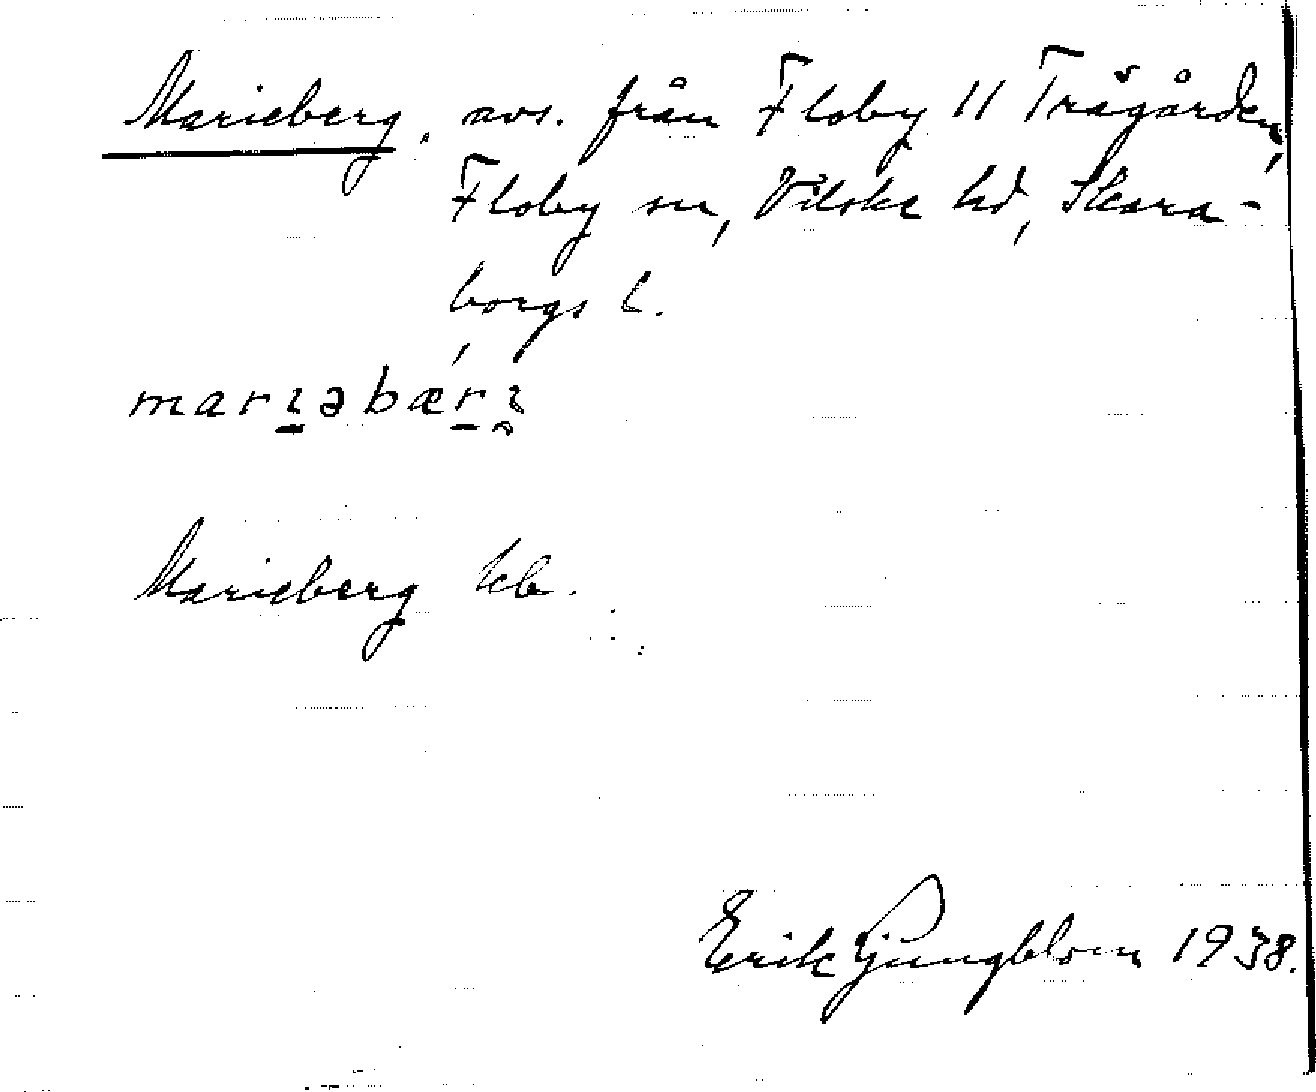 Marieberg, avs. från Floby 11 Trågården,
Floby sn, Vilske hd, Skara-
borgs l.
marɩ̱əbǽṟɩ̯
Marieberg kb.
Erik Ljungblom 1938.